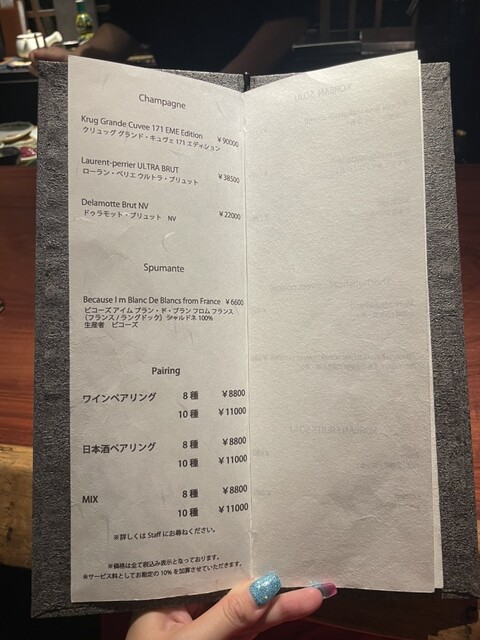 Champagne
Krug Grande Cuvee 171 EME Edition ￥90000
クリュッグ グランド・キュヴェ 171 エディション
Laurent-perrier ULTRA BRUT ￥38500
ローラン・ペリエ ウルトラ・ブリュット
Delamotte Brut NV ￥22000
ドゥラモット・ブリュット NV
Spumante
Because I m Blanc De Blancs from France ￥6600
ビコーズ アイム ブラン・ド・ブラン フロム フランス
(フランス / ラングドック) シャルドネ 100%
生産者 ビコーズ
Pairing
ワインペアリング 8 種 ￥8800
10 種 ￥11000
日本酒ペアリング 8 種 ￥8800
10 種 ￥11000
MIX 8 種 ￥8800
10 種 ￥11000
※詳しくは Staff にお尋ねください。
※価格は全て税込み表示となっております。
※サービス料としてお勘定の 10% を加算させていただきます。